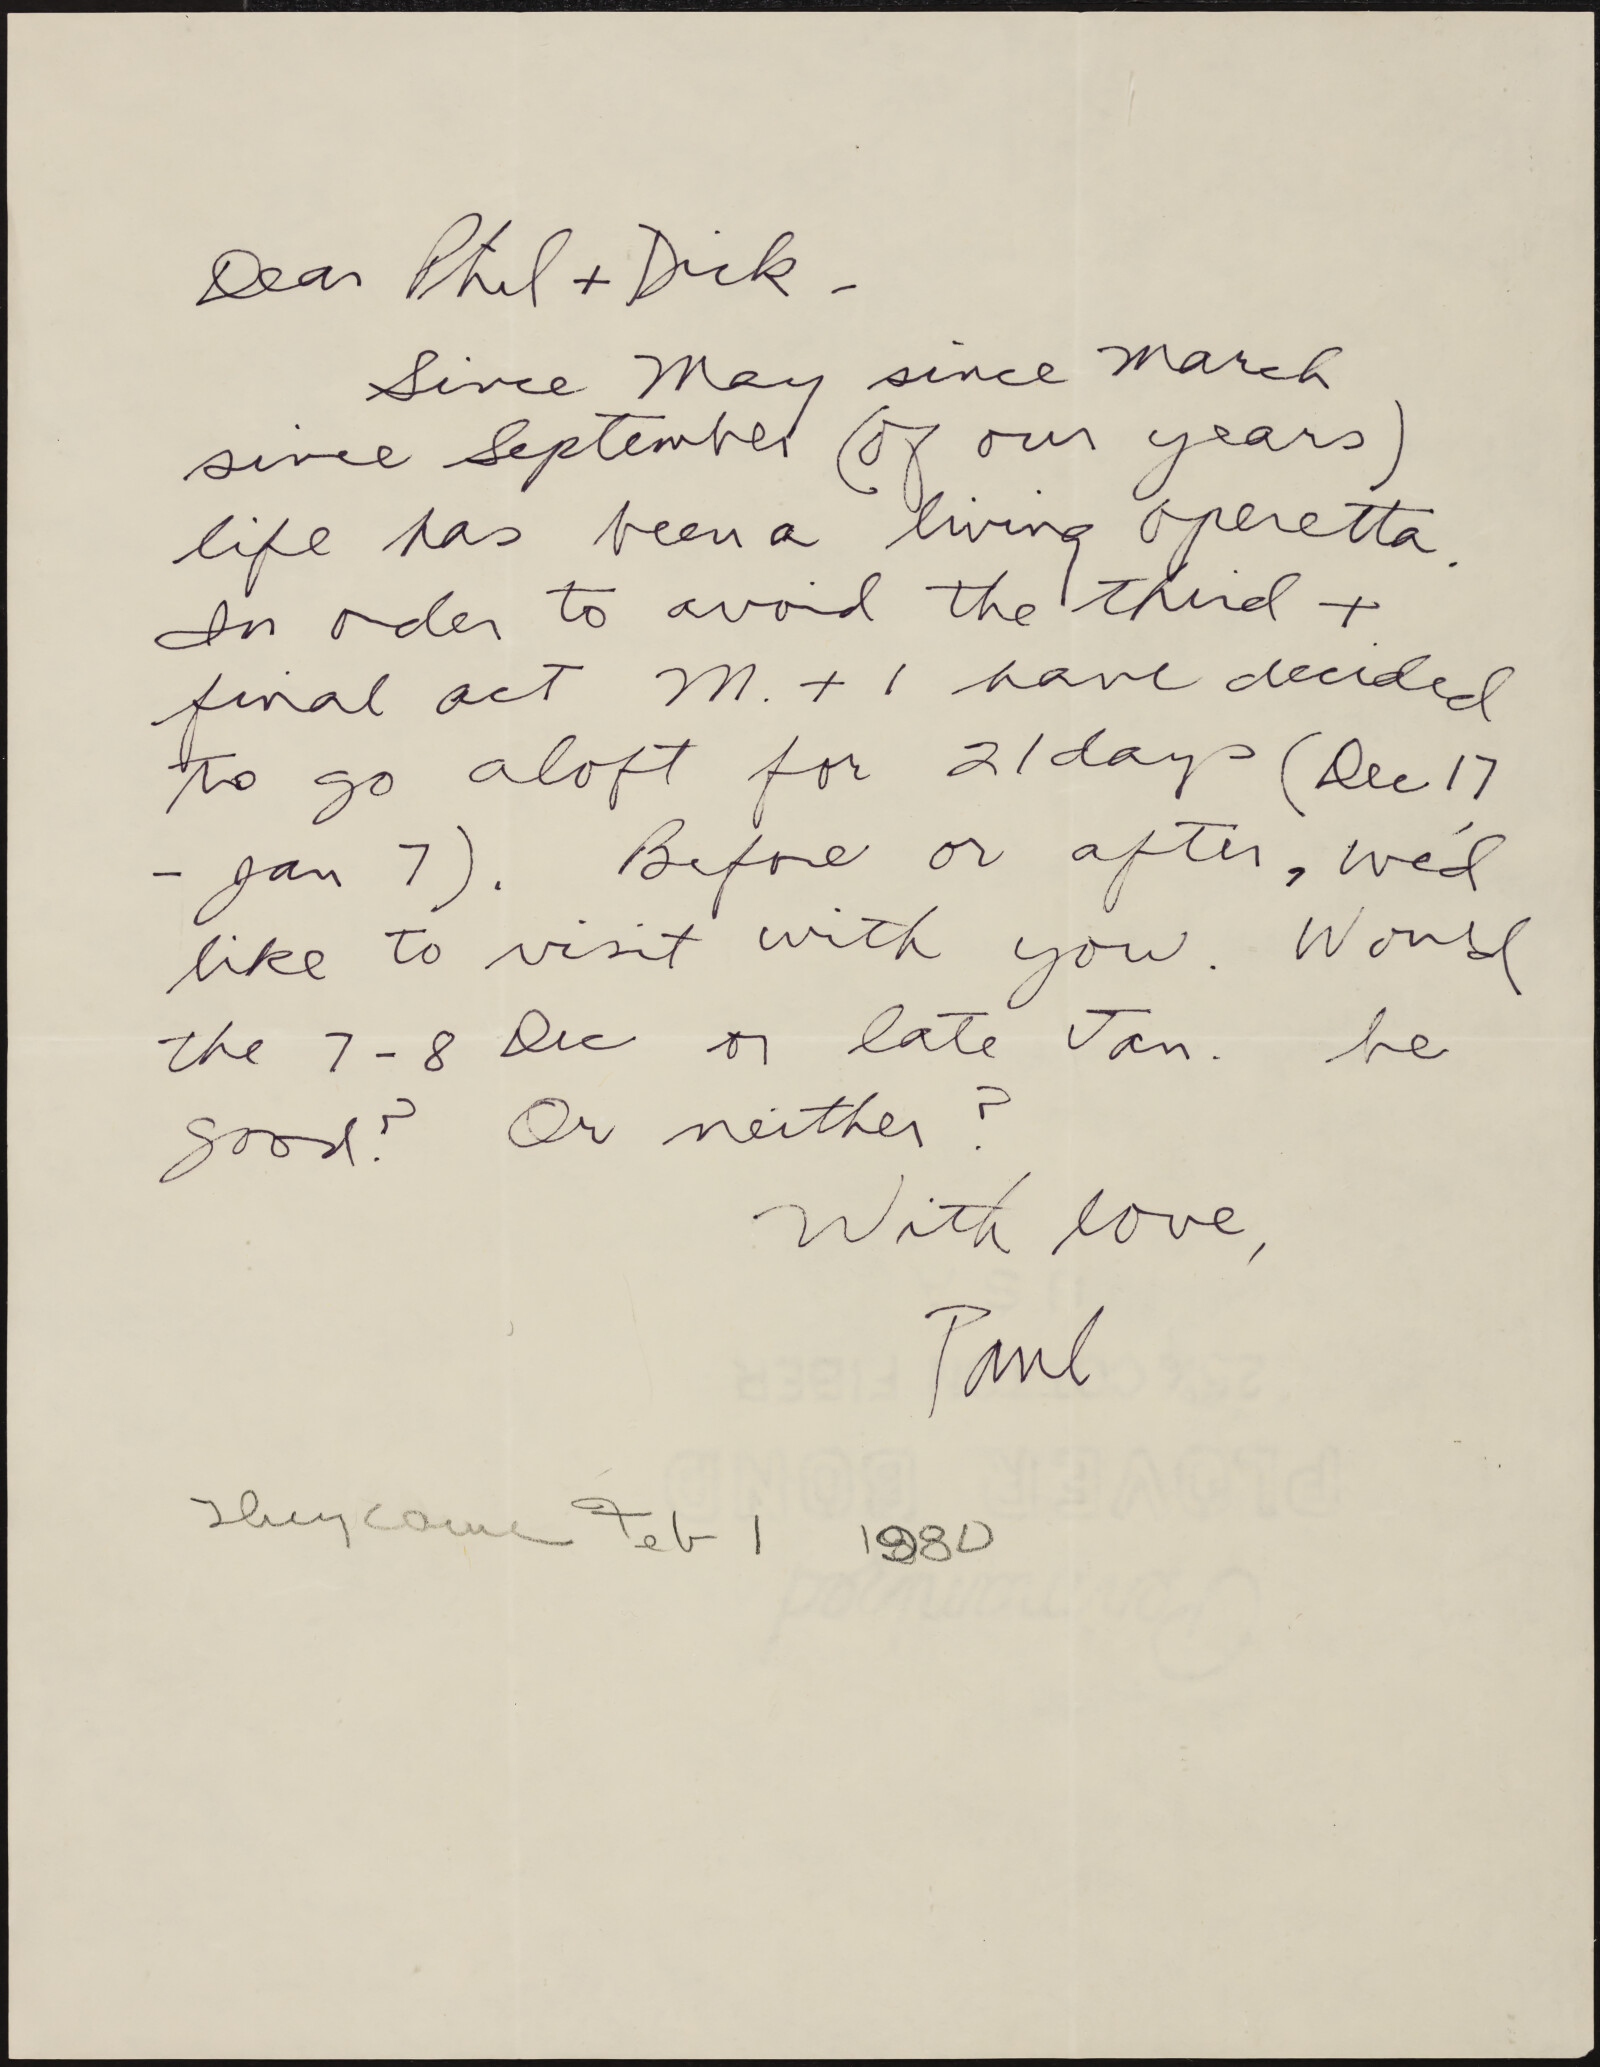 Dear Phil + Dick -
Since May since March
since September (of our years)
life has been a living operetta.
In order to avoid the third +
final act M. + I have decided
to go aloft for 21 days (Dec 17
- Jan 7). Before or after, we'd
like to visit with you. Would
the 7-8 Dec or late Jan. be
good? Or neither?
With love,
Paul
They came Feb 1 1980
FIBER
PLOVER BOND